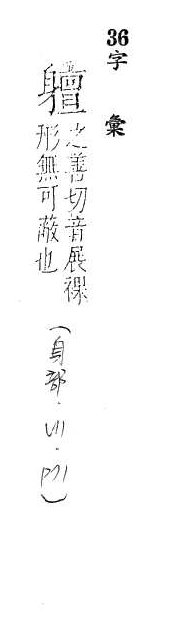 36 字 彙
之善切音展裸
形無可蔽也
(身部.